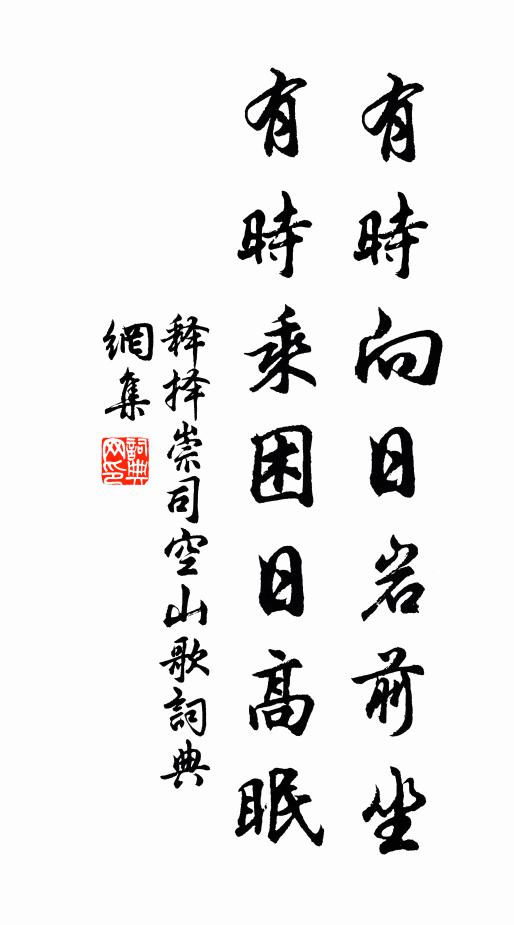 有時向日岩前坐
有時乘困日高眠
释择崇司空山歌詞典
網集
詞典
网印